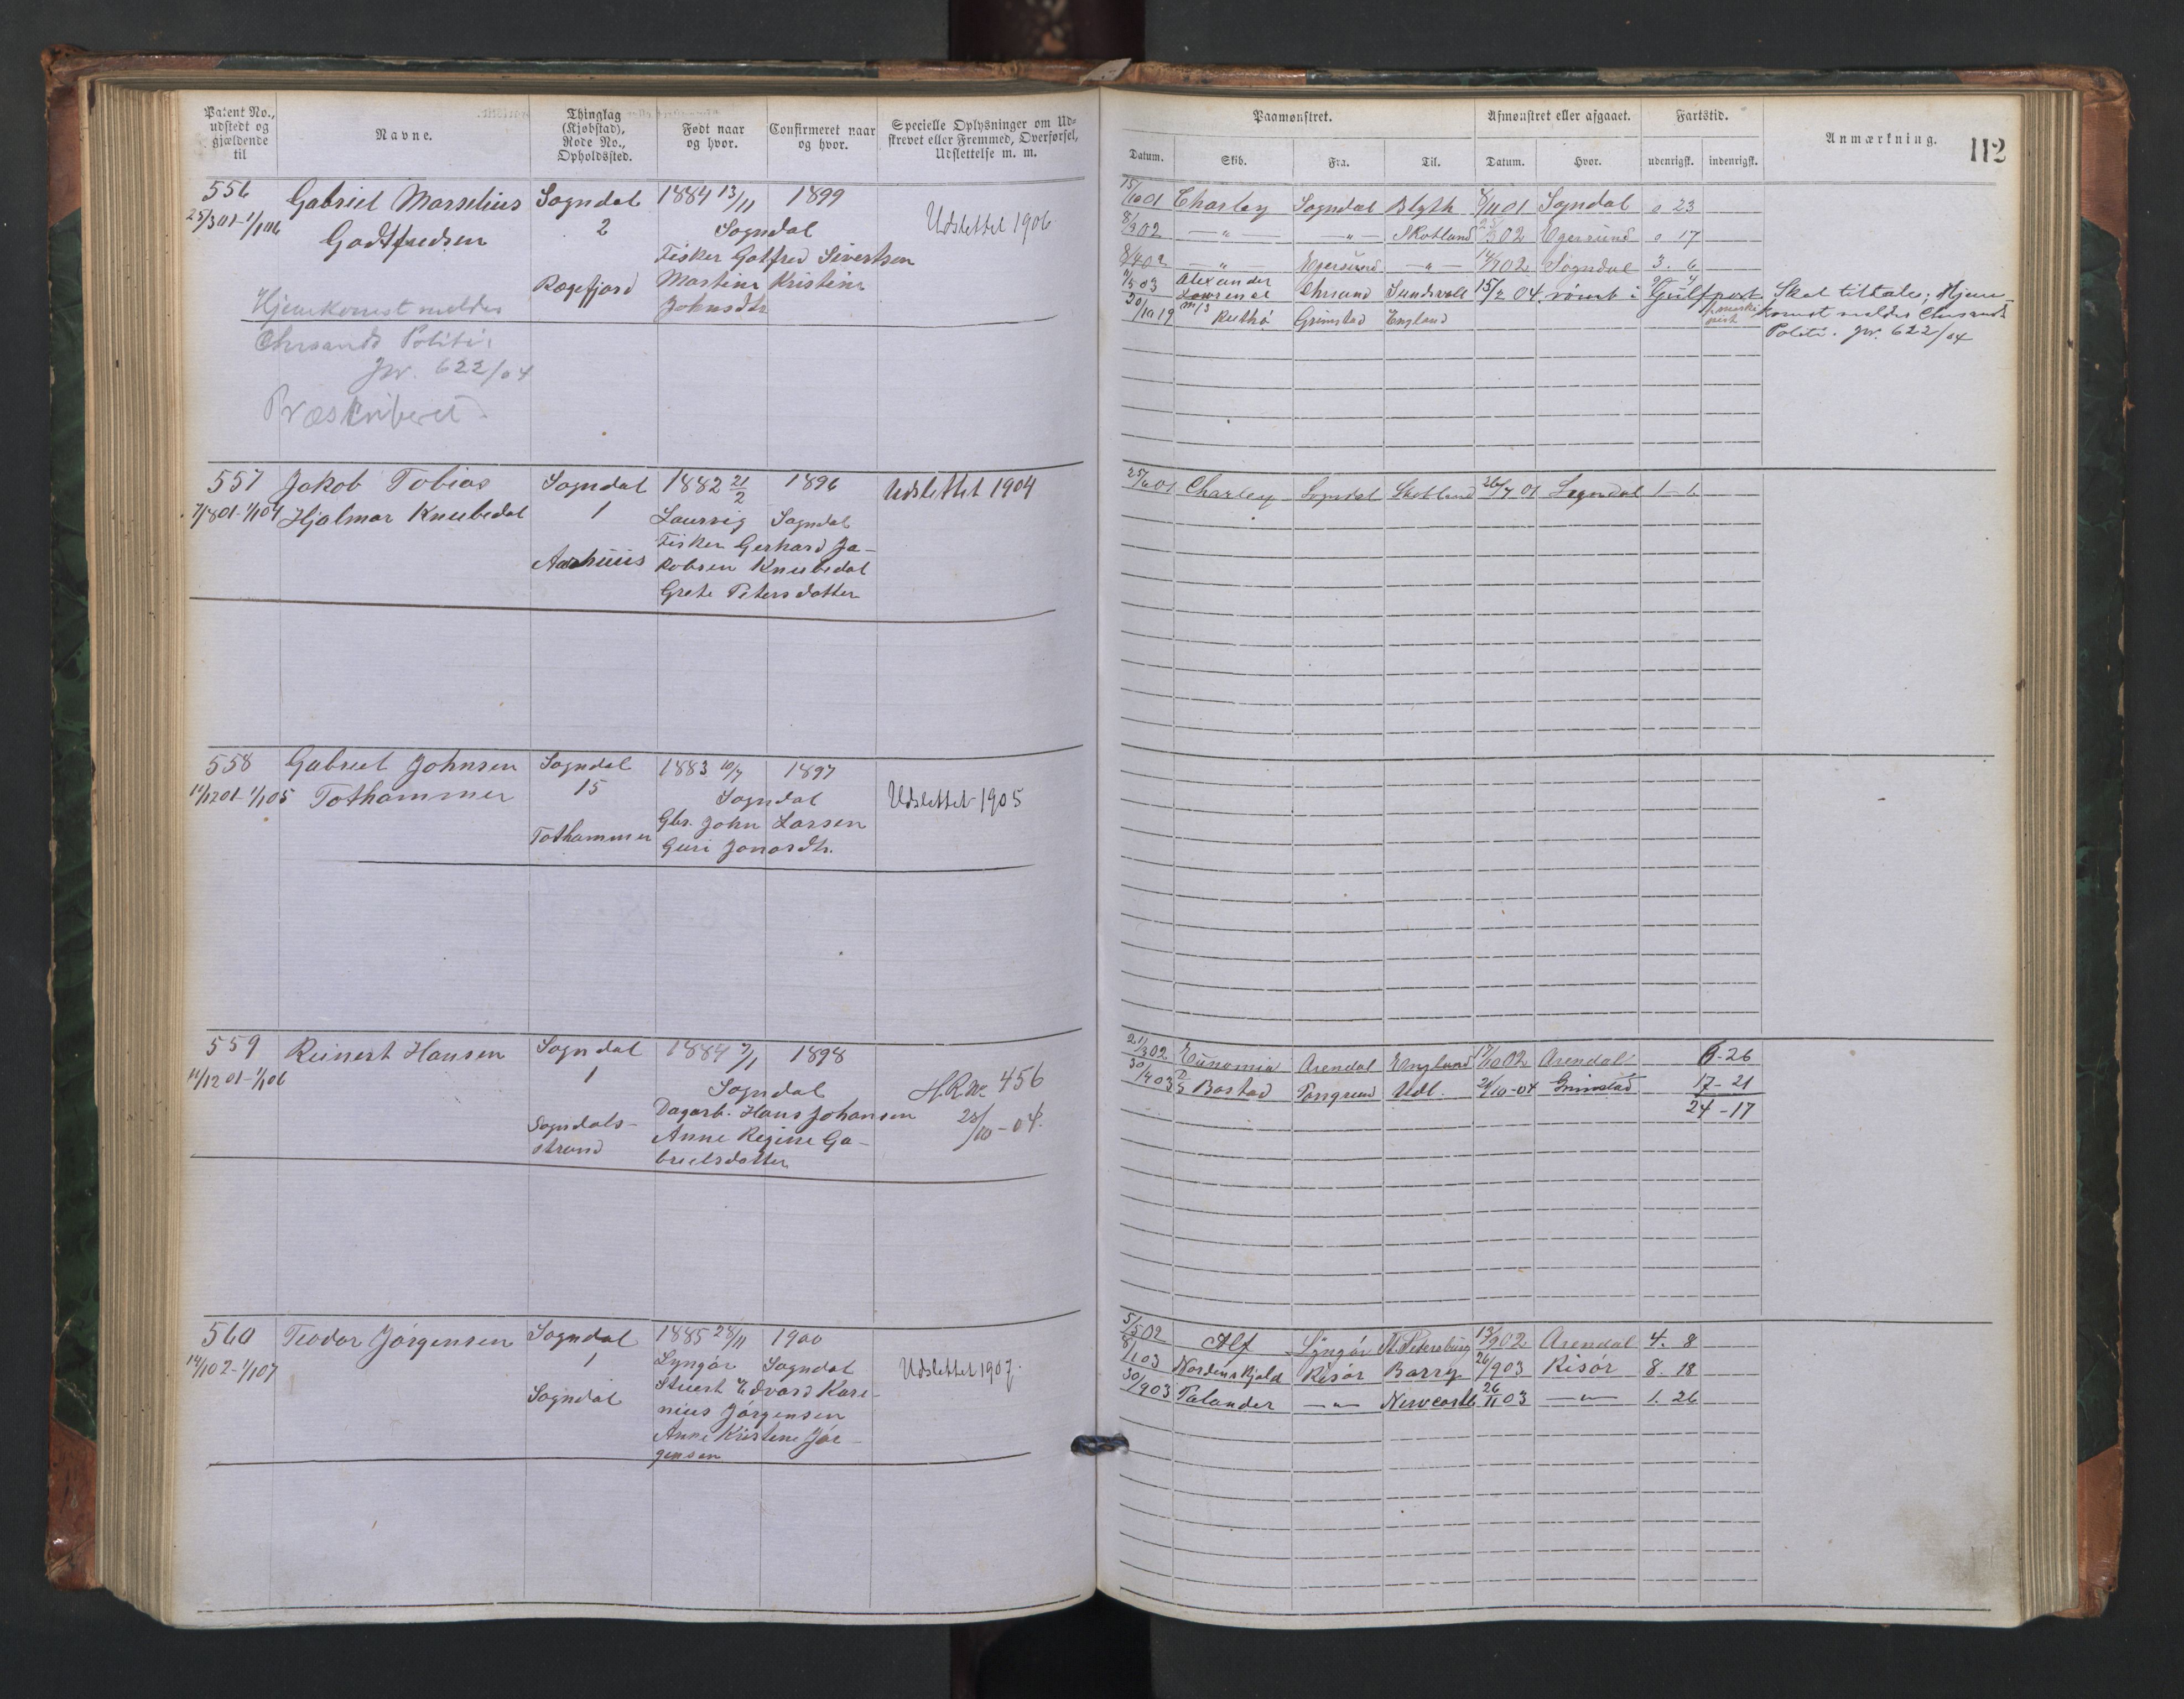 Patent No., udstedt og gjældende til
Navne.
Thinglag (Kjøbstad), Rode No., Opholdssted.
Født naar og hvor.
Confirmeret naar og hvor.
Specielle Oplysninger om Udskrevet eller Fremmed, Overførsel, Udslettelse m. m.
556 Gabriel Marselius Sogndal 1884 13/11 1899
25/3 01 - 1/1 06 Godtfredsen 2 Sogndal Udslettet 1906
Fisker Gotfred Sivertsen
Rægefjord Martine Kristine
Johnsdtr
Hjemkomst meldes
Chrsands Politi
Jr. 622/04
Præskriberet
557 Jakob Tobias Sogndal 1882 21/2 1896 Udslettet 1904
7/8 01 - 1/1 04 Hjalmar Knubedal 1 Laurvig Sogndal
Fisker Gerhard Ja-
Aarhuus kobsen Knubedal
Grete Petersdatter
558 Gabriel Johnsen Sogndal 1883 10/7 1897
11/12 01 - 1/1 05 Tothammer 15 Sogndal Udslettet 1905
Gbr. John Larsen
Tothammer Guri Jonasdtr.
559 Reinert Hansen Sogndal 1884 7/1 1898
11/12 01 - 1/1 06 1 Sogndal H.R. No 456
Sogndals- Dagarb. Hans Johansen 28/10 - 04.
strand Anne Regine Ga-
brielsdatter
560 Teodor Jörgensen Sogndal 1885 28/11 1900
14/1 02 - 1/1 07 1 Lyngör Sogndal Udslettet 1907.
Sogndal Stuert Edvard Kare-
nius Jörgensen
Anne Kristine Jör-
gensen
Paamønstret.
Afmønstret eller afgaaet.
Fartstid.
Anmærkning.
112
Datum. Skib. Fra. Til. Datum. Hvor. udenrigsk. indenrigsk.
15/10 01 Charley Sogndal Blyth 8/11 01 Sogndal 0 23
8/3 02 — " — — " — Skotland 02 Egersund 0 17
8/4 02 — " — Egersund — " — 14/7 02 Sogndal 3. 6
7/5 03 Alexander Lawrence Chrsand Sundsvall 15/2 04 rømt i Gulfport Skal tiltales; Hjem-
20/10 19 m/s Ruthö Grimstad England komst meldes Chrsands
Politi. Jr. 622/04
25/6 01 Charley Sogndal Skotland 26/7 01 Sogndal 1 - 1
21/3 02 Eunomia Arendal England 17/10 02 Arendal 6-26
30/4 03 Bastad Porsgrund Udl. 21/10-04 Grimstad 17-21
24-17
5/5 02 Alf Lyngör St. Petersburg 13/9 02 Arendal 4. 8
8/1 03 Nordenskjold Risör Barry 26/9 03 Risör 8. 18
30/9 03 Palander — " — Newcastle 26/11 03 — " — 1. 26